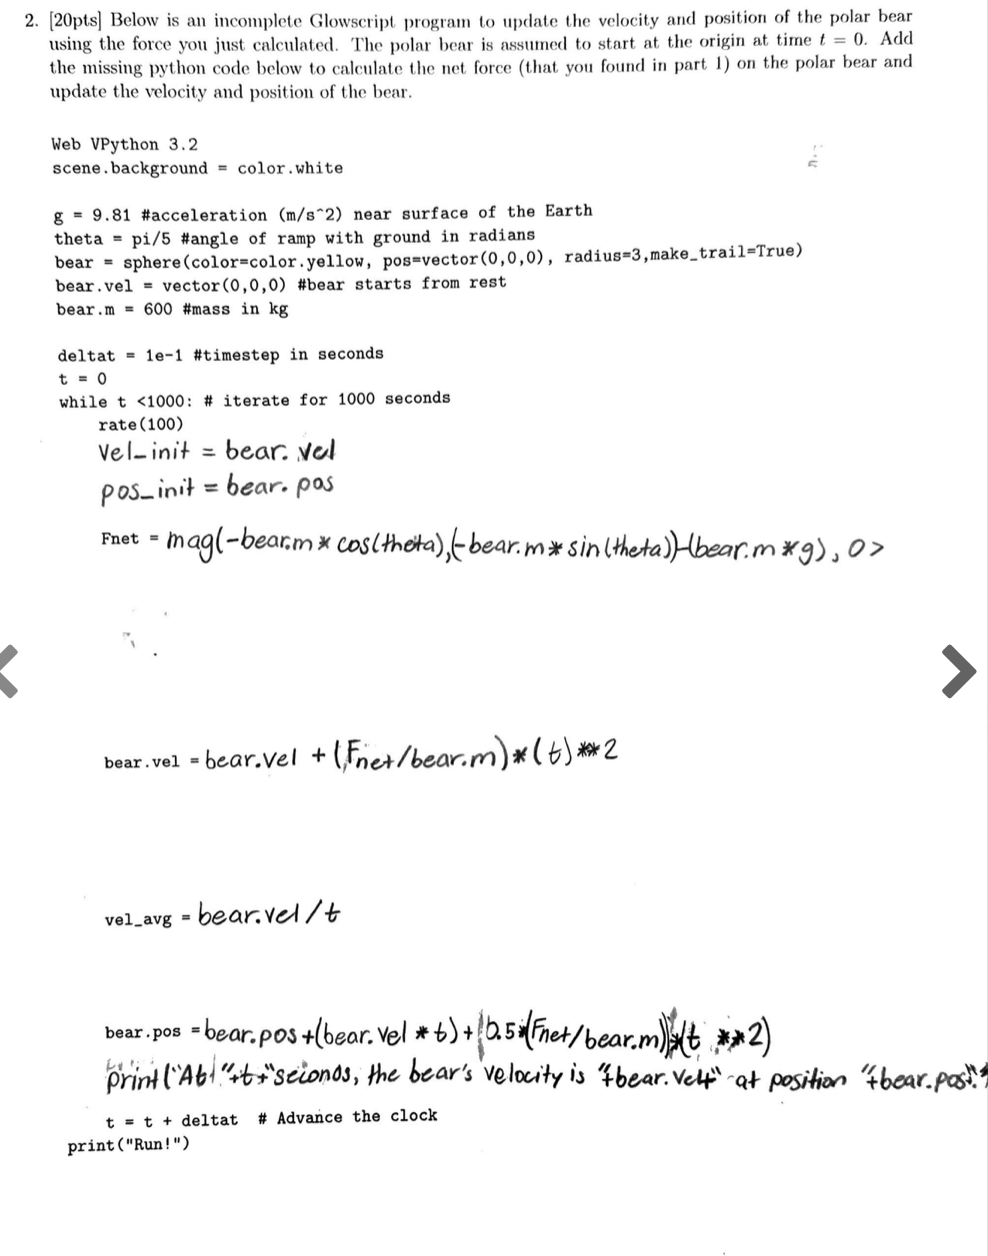 2. [20pts] Below is an incomplete Glowscript program to update the velocity and position of the polar bear
using the force you just calculated. The polar bear is assumed to start at the origin at time t = 0. Add
the missing python code below to calculate the net force (that you found in part 1) on the polar bear and
update the velocity and position of the bear.
Web VPython 3.2
scene.background = color.white
g = 9.81 #acceleration (m/s^2) near surface of the Earth
theta = pi/5 #angle of ramp with ground in radians
bear = sphere(color=color.yellow, pos=vector(0,0,0), radius=3,make_trail=True)
bear.vel = vector(0,0,0) #bear starts from rest
bear.m = 600 #mass in kg
deltat = 1e-1 #timestep in seconds
t = 0
while t <1000: # iterate for 1000 seconds
rate(100)
vel_init = bear.vel
pos_init = bear.pos
Fnet = mag(-bear.m * cos(theta),(-bear.m * sin(theta))-(bear.m * g), 0>
bear.vel = bear.vel + (Fnet/bear.m)*(t)**2
vel_avg = bear.vel/t
bear.pos = bear.pos+(bear.vel * t)+(0.5*(Fnet/bear.m))*(t **2)
print("At "+t+"seconds, the bear's velocity is "+bear.vel+" at position "+bear.pos+"."
t = t + deltat # Advance the clock
print("Run!")